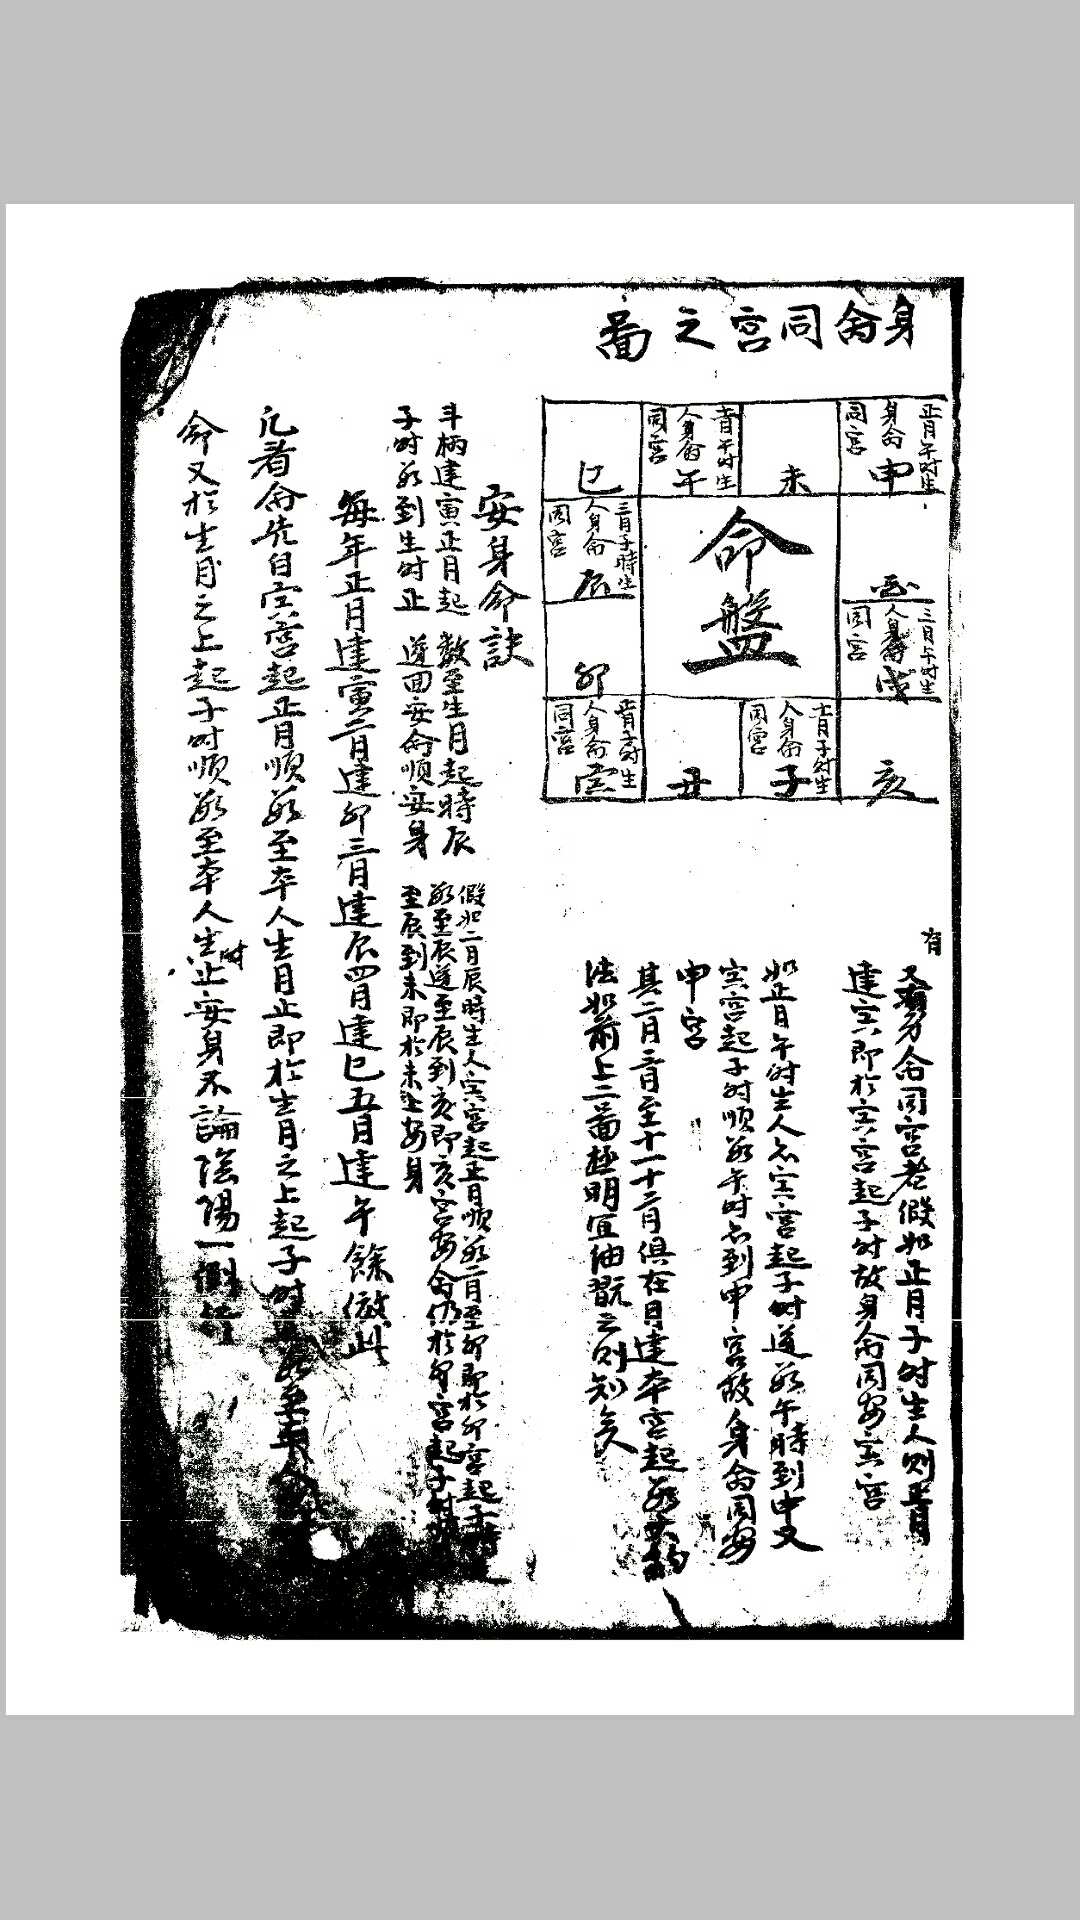 身命同宮之啚
正月午时生
身命
同宮
申
未
十一月午时生
人身命
同宮
午
巳
三月子時生
人身命
同宮
辰
命盤
酉
三月午时生
人身命
同宮
戌
卯
正月子时生
人身命
同宮
寅
丑
十一月子时生
人身命
同宮
子
亥
有
又有身命同宮者假如正月子时生人则正月
建寅即於寅宮起子时故身命同安寅宮
如正月午时生人亦寅宮起子时逆数午時到申又
寅宮起子时順数午时亦到申宮故身命同安
申宮
其二月三月至十一十二月俱在月建本宮起数
法如前上二啚極明宜細翫之则知矣
安身命訣
斗柄建寅正月起 数至生月起時辰
子时数到生时止 逆回安命順安身
假如二月辰時生人寅宮起正月順数二月至卯即於卯宮起子時
数至辰逆至辰到亥即亥宮安命仍於卯宮起子时順
至辰到未即於未上安身
每年正月建寅二月建卯三月建辰四月建巳五月建午餘倣此
凡看命先自寅宮起正月順数至本人生月止即於生月之上起子时逆数至本人
命又於生月之上起子时順数至本人生时止安身不論陰陽一例